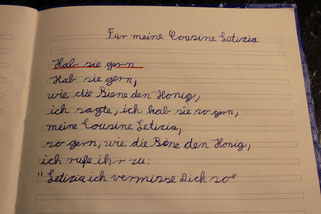 Für meine Cousine Letizia
Hab sie gern
Hab sie gern,
wie die Biene den Honig,
ich sagte, ich hab sie so gern,
meine Cousine Letizia,
so gern, wie die Bine den Honig,
ich rufe ihr zu:
"Letizia ich vermisse Dich so"